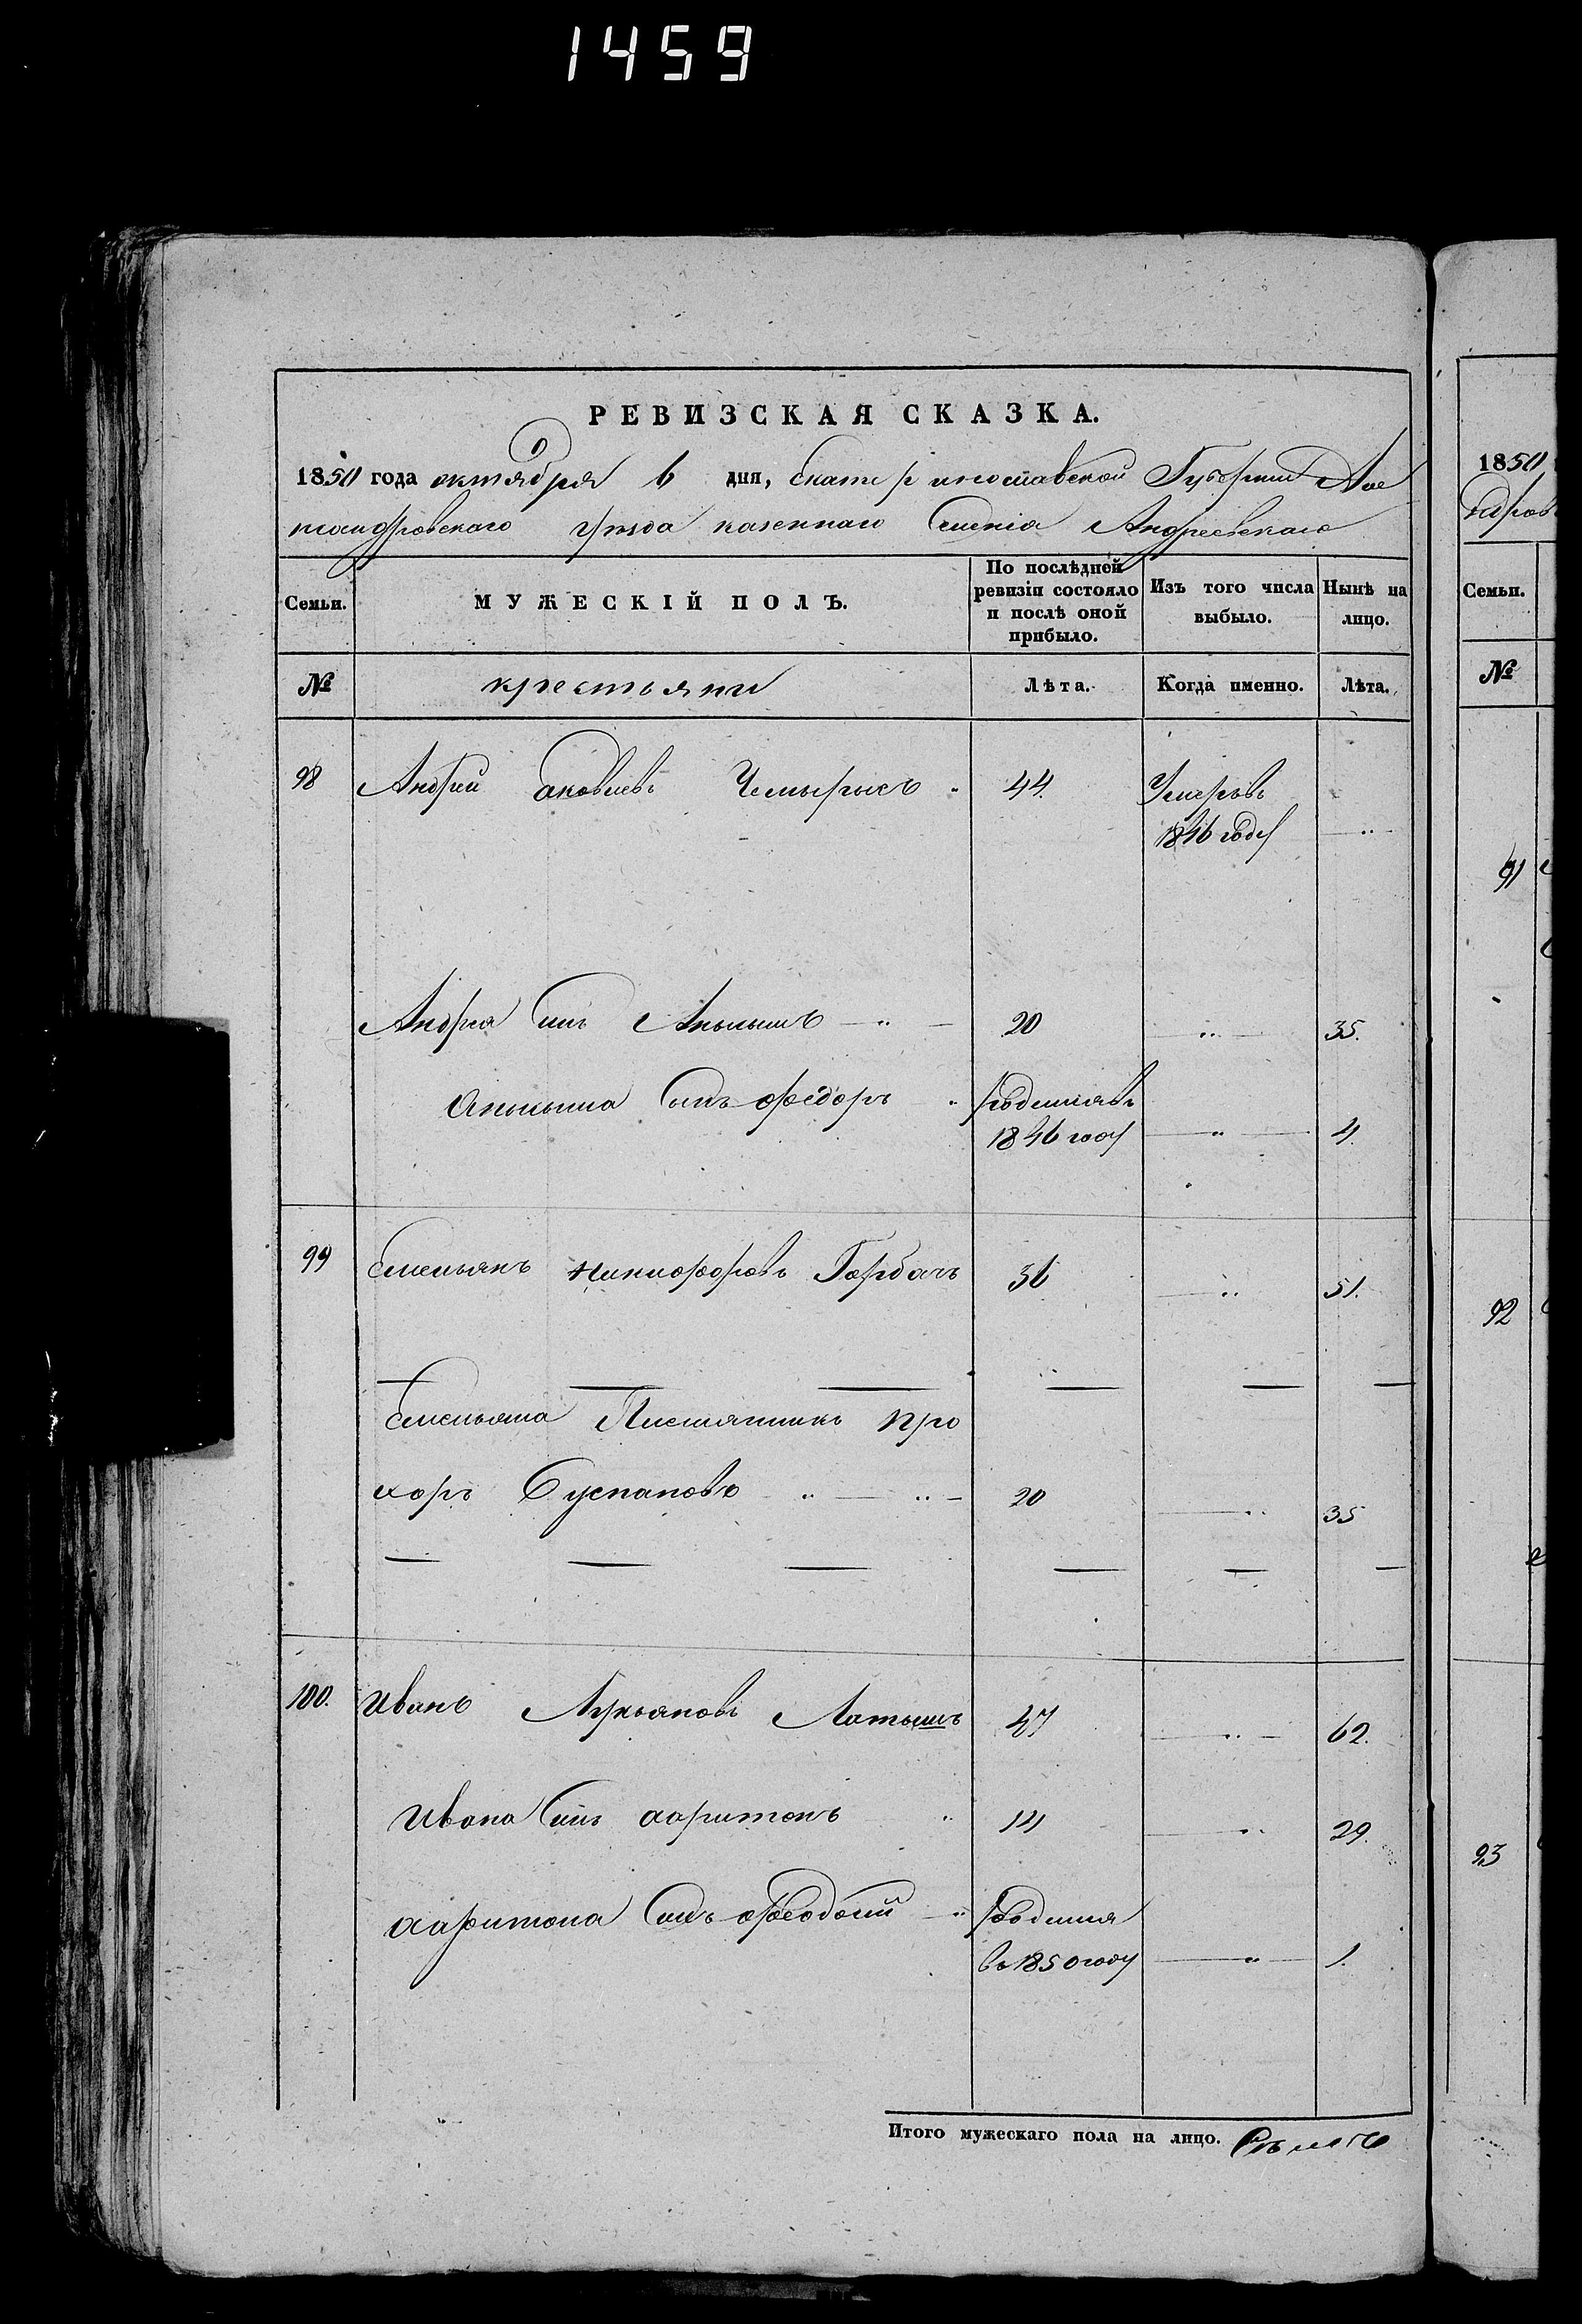 1459
РЕВИЗСКАЯ СКАЗКА.
1850 года октября 6 дня, Екатеринославской Губернии Алек
сандровскаго уезда казеннаго Селенія Андреевскаго
Семьи.
МУЖЕСКІЙ ПОЛЪ.
По послѣдней ревизіи состояло и послѣ оной прибыло.
Изъ того числа выбыло.
Нынѣ на лицо.
№ крестьяни Лѣта. Когда именно. Лѣта.
98 Андрей Яковлевъ 44. Умеръвъ
1846 году
Андрея сынъ 20 35.
сынъ Федоръ родилсявъ
1846 году 4.
99 Емельянъ Никифоровъ Горбачъ 36 51.
Емельяна Племянникъ Про
хоръ 20 35
100. Иванъ Лукьяновъ Латышъ 47 62.
Ивана сынъ Харитонъ 14 29.
Харитона сынъ Феодосій родился
въ 1850 году 1.
Итого мужескаго пола на лицо.
1850
Семьи.
№
91
92
93